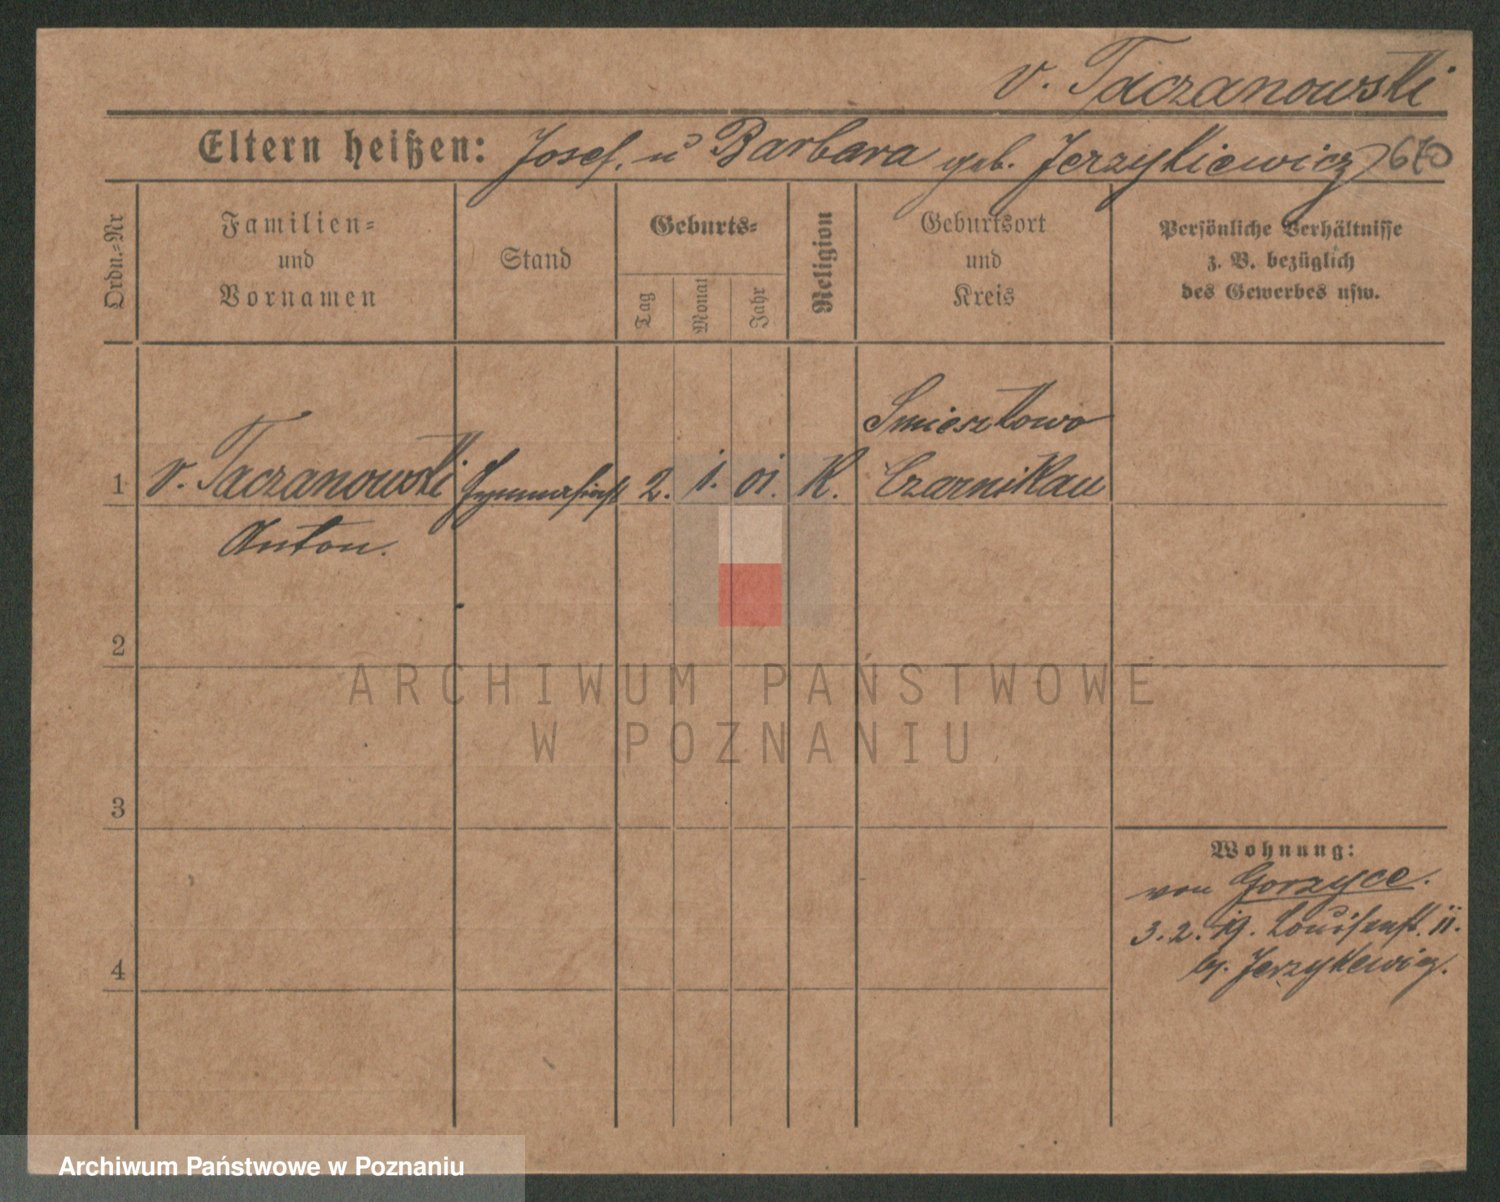 v. Taczanowski
Eltern heißen: Josef. u Barbara geb. Jerzykiewicz 670
Ordn.-Nr
Familien-
und
Vornamen
Stand
Geburts-
Tag
Monat
Jahr
Religion
Geburtsort
und
Kreis
Persönliche Verhältnisse
z. B. bezüglich
des Gewerbes usw.
Smieszkowo
1 v. Taczanowski Gymnasiast 2. 1. 01. K. Czarnikau
Anton.
2
ARCHIWUM PAŃSTWOWE
W POZNANIU
3
Wohnung:
von Gorzyce.
3. 2. 19. Louisenst. 11.
b. Jerzykewicz.
4
Archiwum Państwowe w Poznaniu